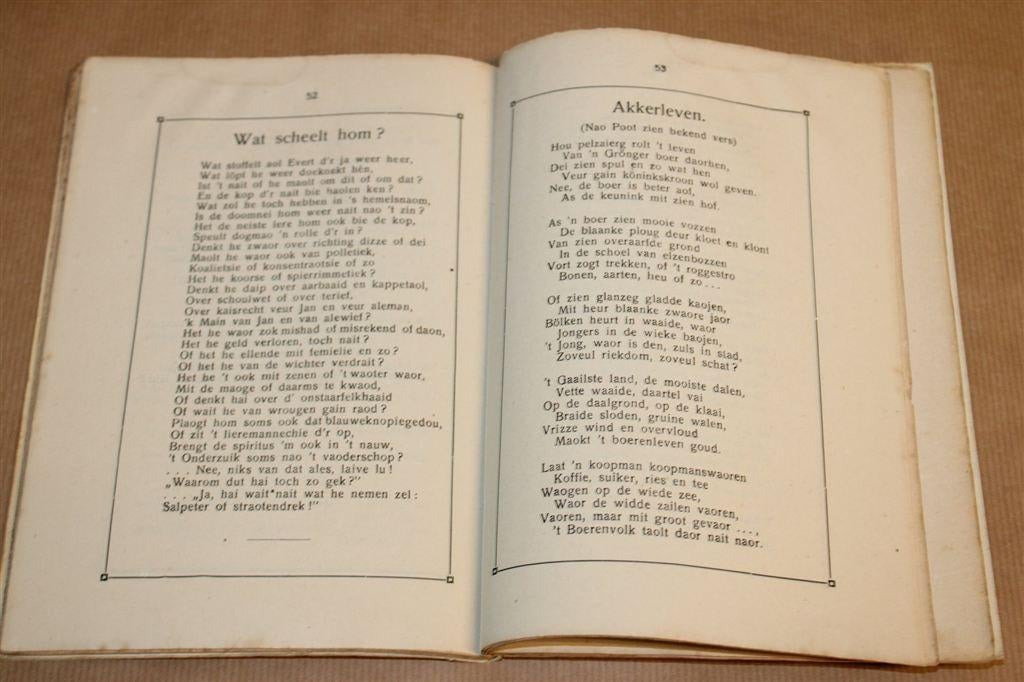 52
Wat scheelt hom?
Wat stoffelt aol Evert d'r ja weer heer,
Wat löpt he weer docknekt hèn,
Ist 't nait of he maolt om dit of om dat?
En de kop d'r nait bie haolen ken?
Wat zol he toch hebben in 's hemelsnaom,
Is de doomnei hom weer nait nao 't zin?
Het de neiste lere hom ook bie de kop,
Speult dogmao 'n rolle d'r in?
Denkt he zwaor over richting dizze of dei
Maolt he waor ook van polletiek,
Koalietsie of konsentraotsie of zo
Het he koorse of spierrimmetiek?
Denkt he daip over aarbaaid en kappetaol,
Over schoulwet of over terief,
Over kaisrecht veur Jan en veur aleman,
'k Main van Jan en van alewief?
Het he waor zok mishad of misrekend of daon,
Het he geld verloren, toch nait?
Of het he ellende mit femielie en zo?
Of het he van de wichter verdrait?
Het he 't ook mit zenen of 't waoter waor,
Mit de maoge of daarms te kwaod,
Of denkt hai over d' onstaarfelkhaaid
Of wait he van wrougen gain raod?
Plaogt hom soms ook dat blauweknopiegedou,
Of zit 't lieremannechie d'r op,
Brengt de spiritus 'm ook in 't nauw,
't Onderzuik soms nao 't vaoderschop?
. . . Nee, niks van dat ales, laive lu!
„Waarom dut hai toch zo gek?"
. . . „Ja, hai wait nait wat he nemen zel:
Salpeter of straotendrek!"
53
Akkerleven.
(Nao Poot zien bekend vers)
Hou pelzaierg rolt 't leven
Van 'n Grönger boer daorhen,
Dei zien spul en zo wat hen
Veur gain köninkskroon wol geven.
Nee, de boer is beter aof,
As de keunink mit zien hof.
As 'n boer zien mooie vozzen
De blaanke ploug deur kloet en klont
Van zien overaarfde grond
In de schoel van elzenbozzen
Vort zogt trekken, of 't roggestro
Bonen, aarten, heu of zo . . .
Of zien glanzeg gladde kaojen,
Mit heur blaanke zwaore jaor
Bölken heurt in waaide, waor
Jongers in de wieke baojen,
't Jong, waor is den, zuls in stad,
Zoveul riekdom, zoveul schat?
't Gaailste land, de mooiste dalen,
Vette waaide, daartel vai
Op de daalgrond, op de klaai,
Braide sloden, gruine walen,
Vrizze wind en overvloud
Maokt 't boerenleven goud.
Laat 'n koopman koopmanswaoren
Koffie, suiker, ries en tee
Waogen op de wiede zee,
Waor de widde zailen vaoren,
Vaoren, maar mit groot gevaor . . .,
't Boerenvolk taolt daor nait naor.